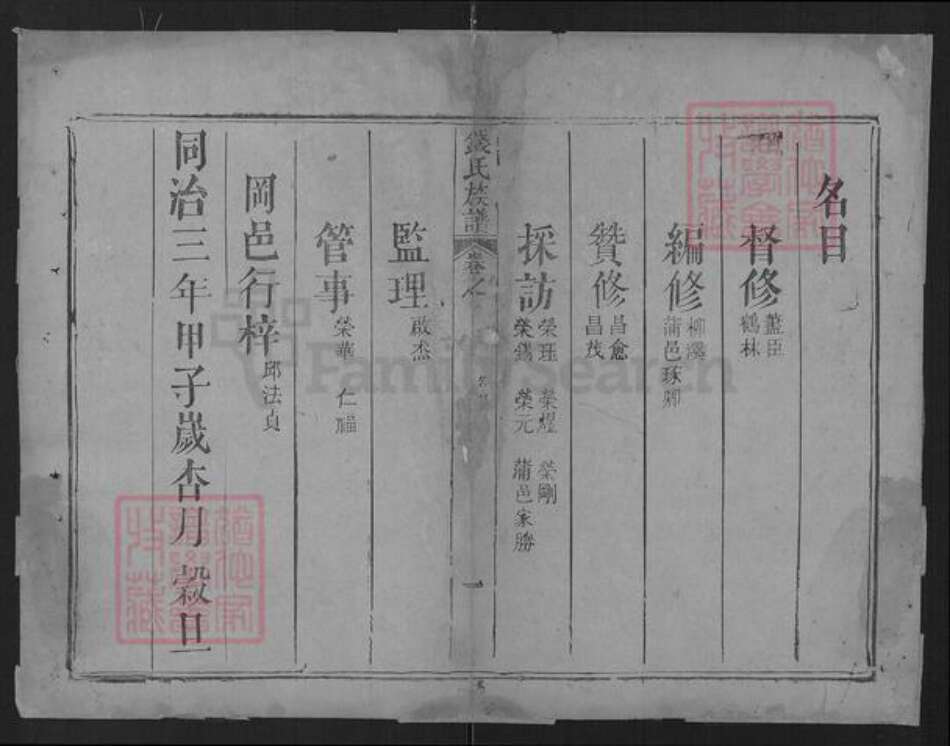 名目
督修 藎臣
鶴林
編修 柳溪
蒲邑琢卿
贊修 昌愈
昌茂
採訪 榮珏 榮耀 榮剛
榮錫 榮元 蒲邑家勝
錢氏族譜 卷之
名目
一
監理 啟杰
管事 榮華 仁福
岡邑行梓 邱法貞
同治三年甲子歲杏月穀旦
FamilySearch